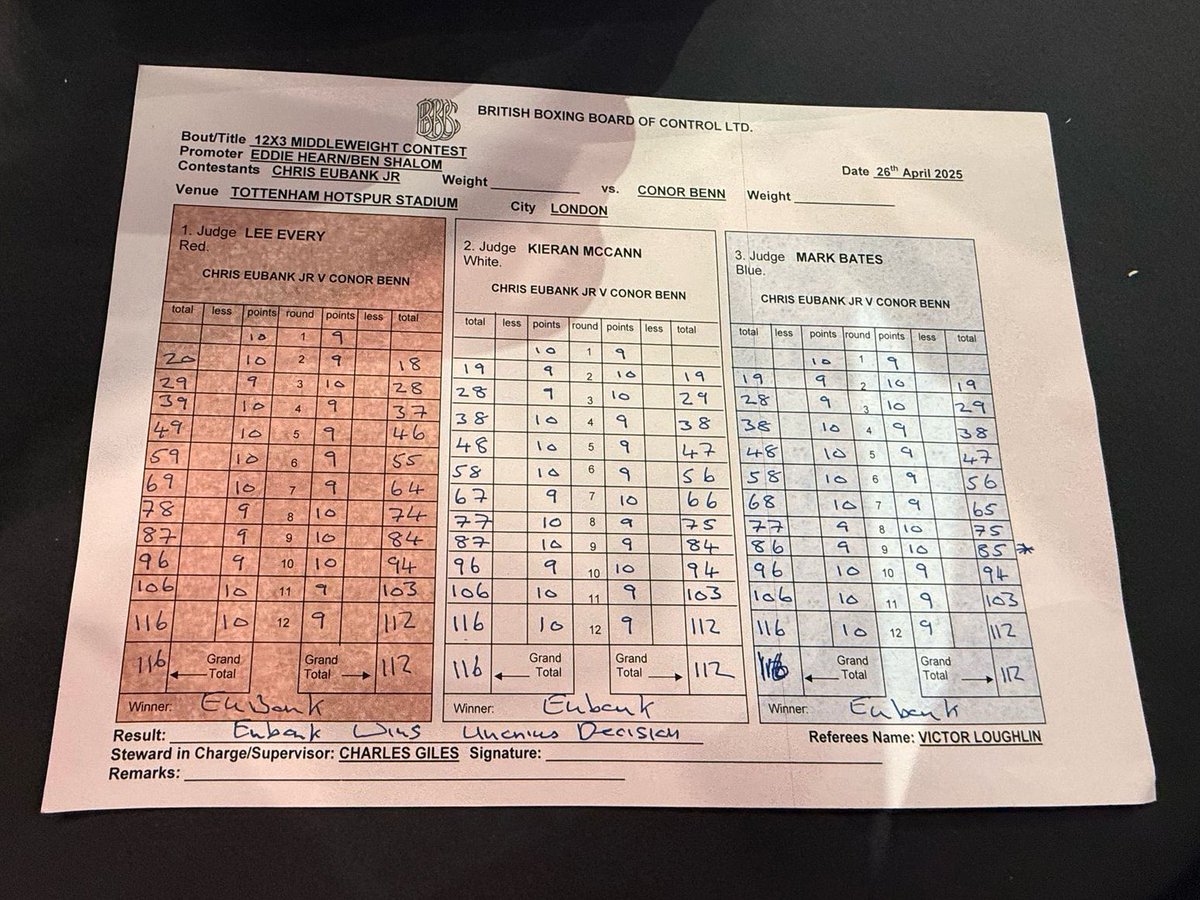 BBBC
BRITISH BOXING BOARD OF CONTROL LTD.
Bout/Title 12X3 MIDDLEWEIGHT CONTEST
Promoter EDDIE HEARN/BEN SHALOM
Date 26th April 2025
Contestants CHRIS EUBANK JR Weight vs. CONOR BENN Weight
Venue TOTTENHAM HOTSPUR STADIUM City LONDON
1. Judge LEE EVERY
Red.
CHRIS EUBANK JR V CONOR BENN
total less points round points less total
10 1 9
20 10 2 9 18
29 9 3 10 28
39 10 4 9 37
49 10 5 9 46
59 10 6 9 55
69 10 7 9 64
78 9 8 10 74
87 9 9 10 84
96 9 10 10 94
106 10 11 9 103
116 10 12 9 112
116 Grand Total Grand Total 112
Winner: Eubank
2. Judge KIERAN MCCANN
White.
CHRIS EUBANK JR V CONOR BENN
total less points round points less total
10 1 9
19 9 2 10 19
28 9 3 10 29
38 10 4 9 38
48 10 5 9 47
58 10 6 9 56
67 9 7 10 66
77 10 8 9 75
87 10 9 9 84
96 9 10 10 94
106 10 11 9 103
116 10 12 9 112
116 Grand Total Grand Total 112
Winner: Eubank
3. Judge MARK BATES
Blue.
CHRIS EUBANK JR V CONOR BENN
total less points round points less total
10 1 9
19 9 2 10 19
28 9 3 10 29
38 10 4 9 38
48 10 5 9 47
58 10 6 9 56
68 10 7 9 65
77 9 8 10 75
86 9 9 10 85 *
96 10 10 9 94
106 10 11 9 103
116 10 12 9 112
116 Grand Total Grand Total 112
Winner: Eubank
Result: Eubank Wins Decision
Referees Name: VICTOR LOUGHLIN
Steward in Charge/Supervisor: CHARLES GILES Signature:
Remarks: